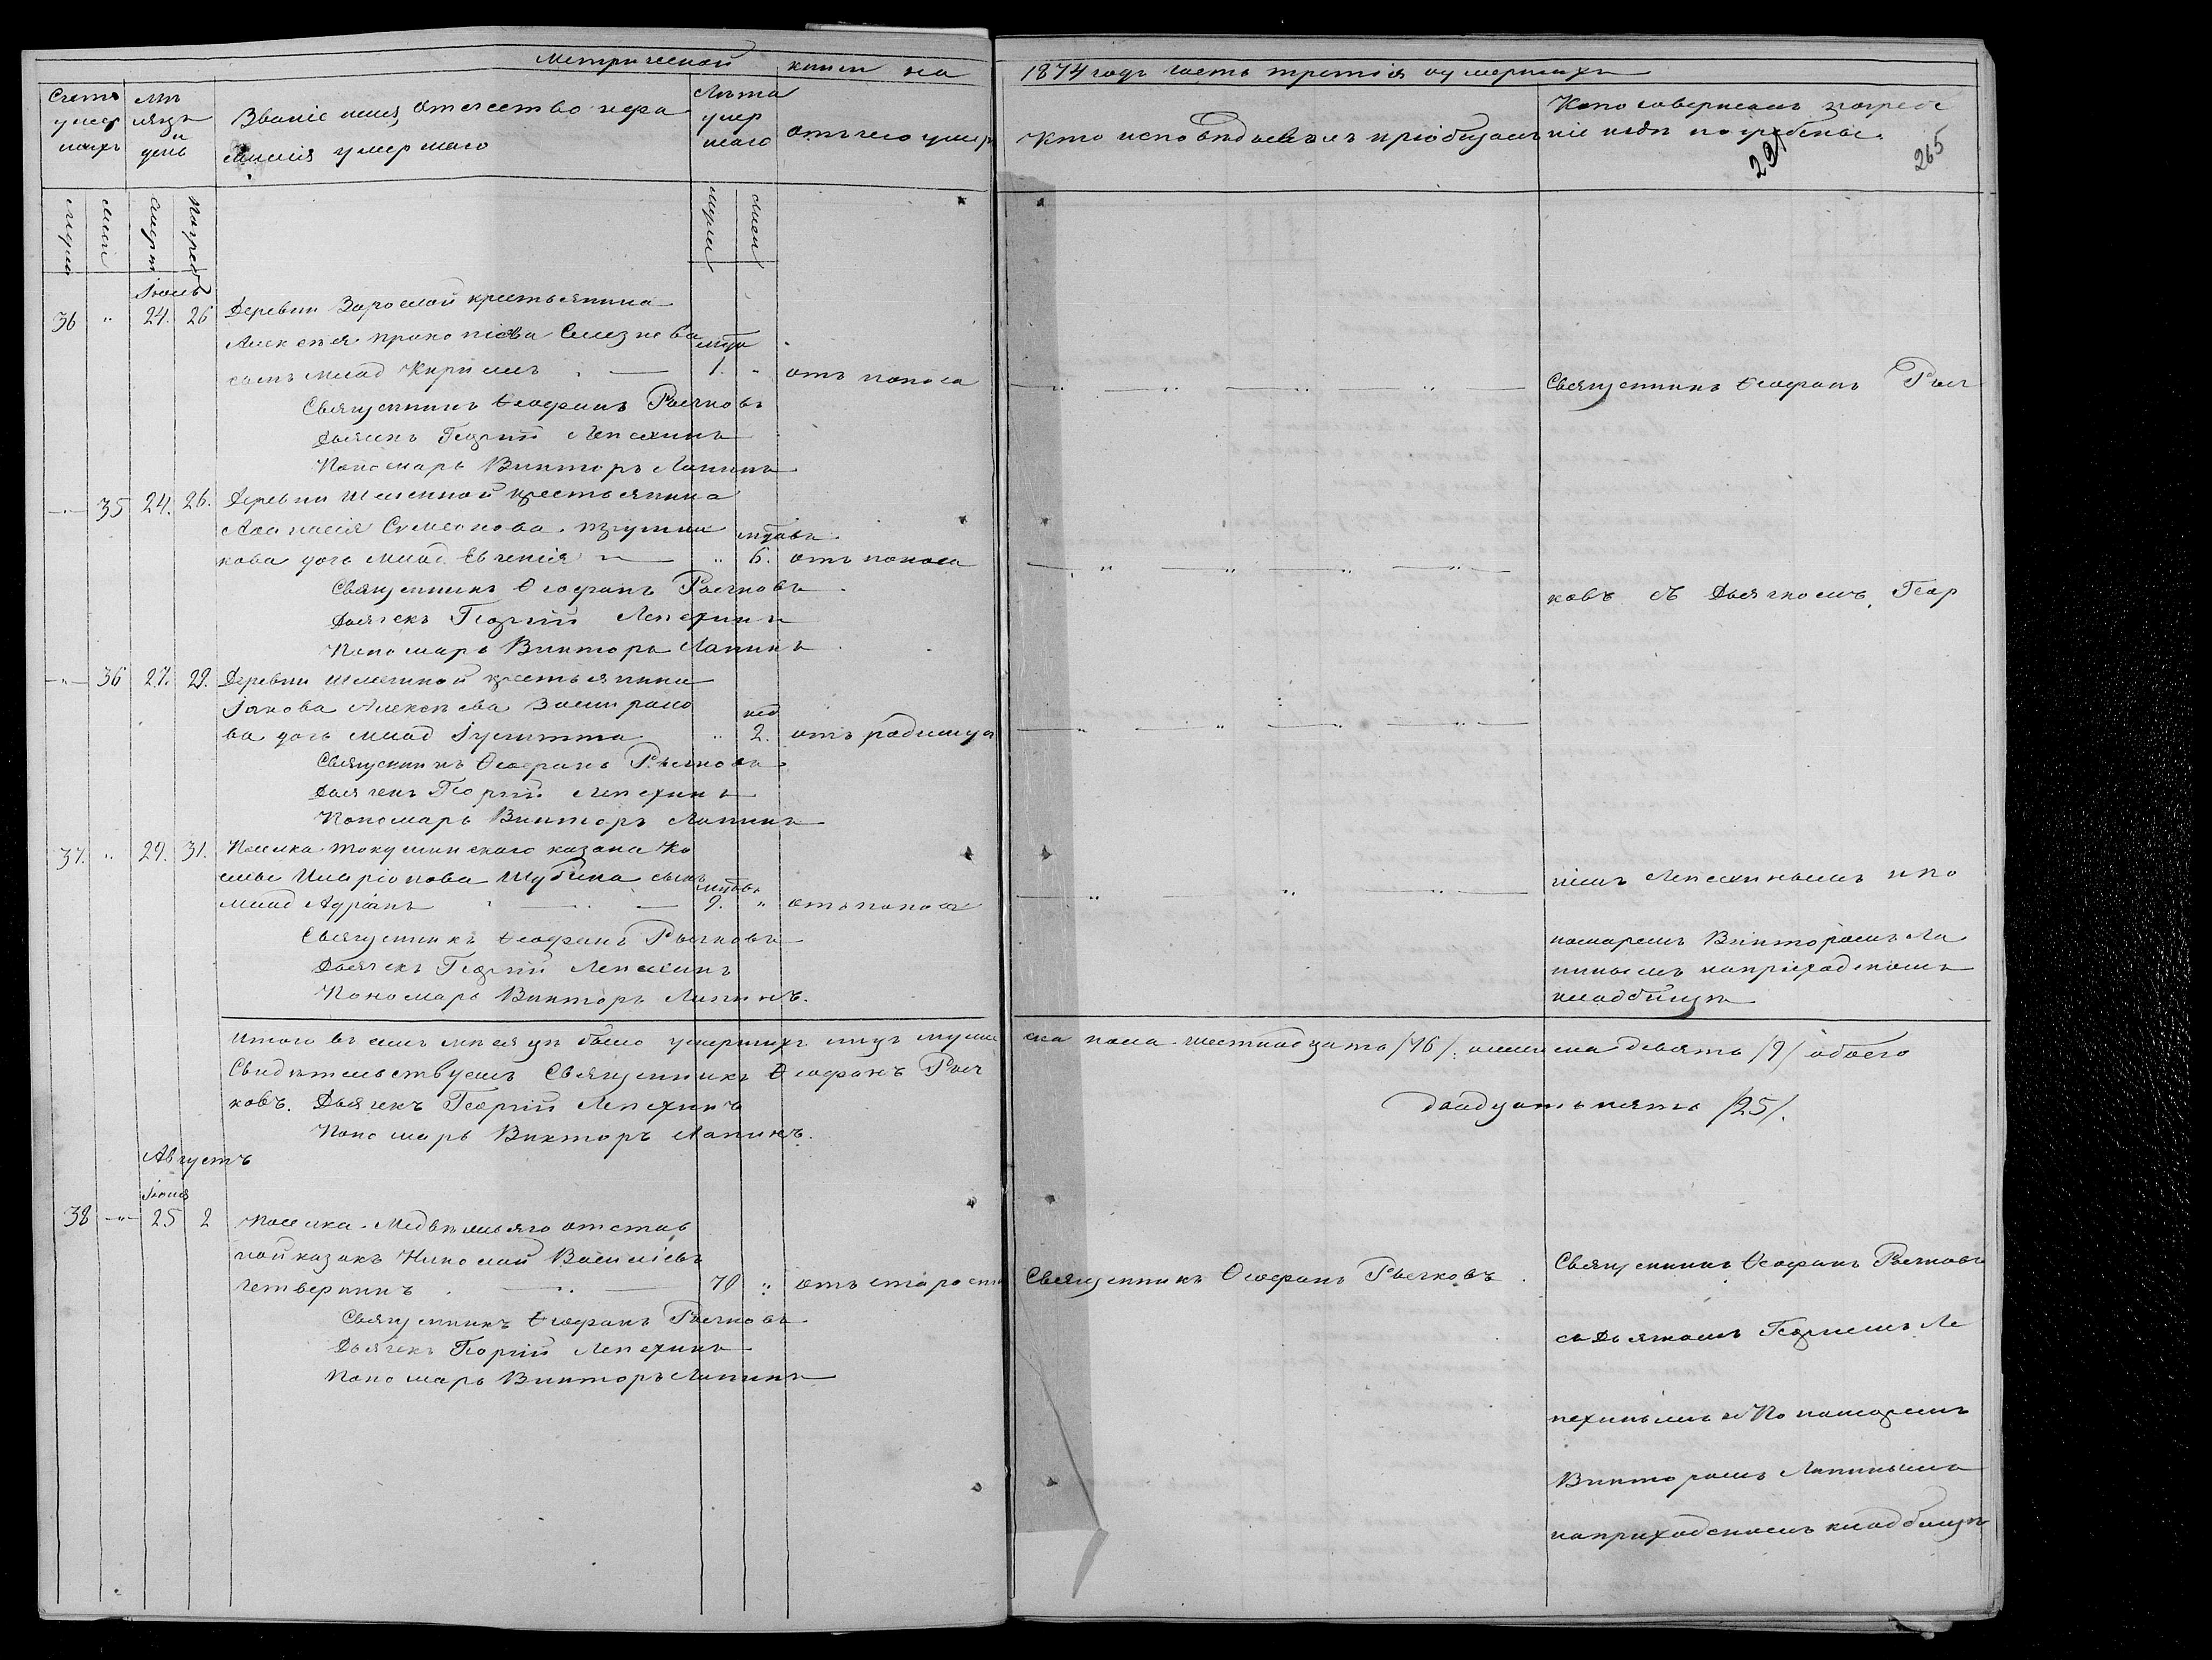 Метрической книги на 1874 годъ часть третія о умершихъ
Счетъ умершихъ
Мѣсяцъ и день
Званіе имя, отчество и фамилія умершаго
Лѣта умершаго
отъ чего умеръ
Кто исповѣдывалъ и пріобщалъ
Кто совершалъ погребеніе и гдѣ погребены.
221
265
мужес
женс
смерт
погреб
мужес
женс
Іюль
36 " 24. 26 Деревни крестьянина
Алексѣя Прокопіева Селезнева
сынъ млад Кирилъ 1. " отъ поноса
Священникъ Ѳеофанъ Рыч
Священникъ Ѳеофанъ Рычковъ
Дьячекъ Георгій Лепехинъ
Пономарь Викторъ Лапинъ
35 24. 26. Деревни крестьянина
Аѳанасія Симеонова
кова дочь млад. Евгенія " 6. отъ поноса
Священникъ Ѳеофанъ Рычковъ
ковъ съ Дьячкомъ Геор
Дьячекъ Георгій Лепехинъ
Пономарь Викторъ Лапинъ
36 27. 29. Деревни крестьянина
Іякова Алексѣева
ва дочь млад Іулитта " нед 2. отъ родимца
Священникъ Ѳеофанъ Рычковъ
Дьячекъ Георгій Лепехинъ
Пономарь Викторъ Лапинъ
37. " 29. 31. Поселка Токушинскаго казака Ко
смы Иларіонова Шубина сынъ
млад Адріанъ 9. " отъ поноса
гіемъ Лепехинымъ и по
Священникъ Ѳеофанъ Рычковъ
номаремъ Викторомъ Ла
Дьячекъ Георгій Лепехинъ
пинымъ на приходскомъ
Пономарь Викторъ Лапинъ.
кладбищѣ
Итого въ семъ мѣсяцѣ было умершихъ лицъ муже
ска пола шестнадцать /16/. женска девять /9/ обоего
Свидѣтельствуемъ Священникъ Ѳеофанъ Рыч
ковъ. Дьячекъ Георгій Лепехинъ
двадцать пять /25/.
Пономарь Викторъ Лапинъ.
Августъ
Іюля
38 " 25 2 Поселка Медвѣжьяго отстав
ной казакъ Николай Василіевъ
Четверкинъ 70 " отъ старости
Священникъ Ѳеофанъ Рычковъ
Священникъ Ѳеофанъ Рычковъ
Священникъ Ѳеофанъ Рычковъ
съ Дьячкомъ Георгіемъ Ле
Дьячекъ Георгій Лепехинъ
Пономарь Викторъ Лапинъ
пехинымъ и Пономаремъ
Викторомъ Лапинымъ
на приходскомъ кладбищѣ